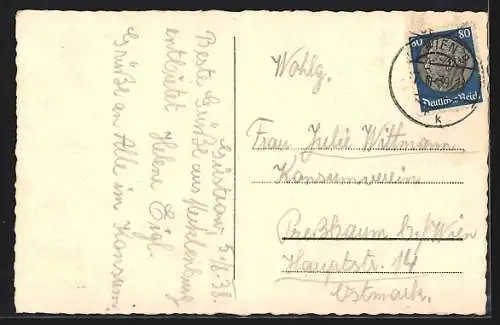 Güstrow 5/8. 38.
Beste Grüße aus Mecklenburg
entbietet
Helene Eigl.
Grüße an Alle im Konsum.
Wohlg.
Frau Julie Wittmann
Konsumverein
Preßbaum b./Wien
Hauptstr. 14
Ostmark.
80
Deutsches Reich
WIEN
k